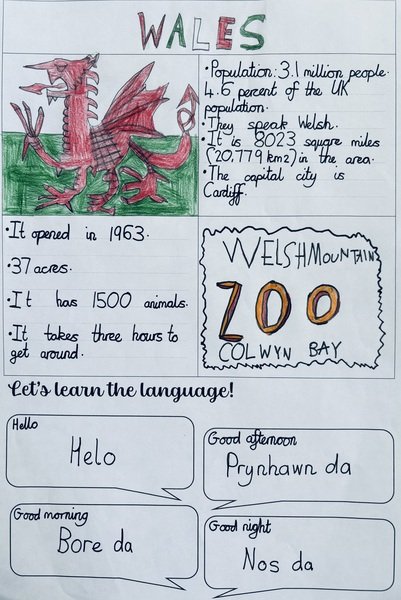 WALES
•Population: 3.1 million people.
4.6 percent of the UK
population.
•They speak Welsh.
•It is 8023 square miles
(20,779 km2) in the area.
•The capital city is
Cardiff.
•It opened in 1963.
•37 acres.
•It has 1500 animals.
•It takes three hours to
get around.
WELSH MOUNTAIN
ZOO
COLWYN BAY
Let's learn the language!
Hello
Helo
Good afternoon
Prynhawn da
Good morning
Bore da
Good night
Nos da